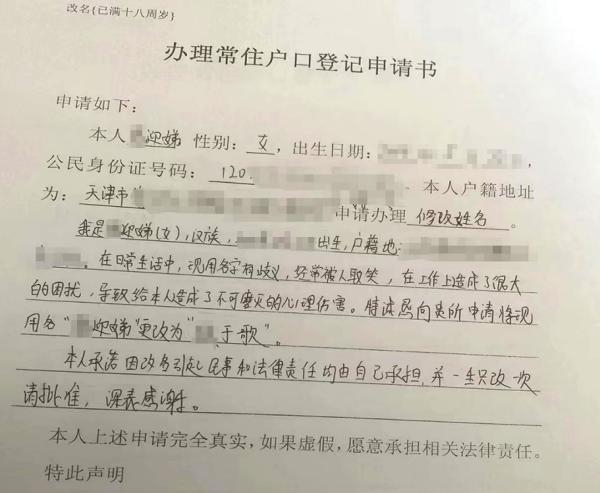 改名{已满十八周岁}
办理常住户口登记申请书
申请如下:
本人 迎娣 性别: 女, 出生日期:
公民身份证号码: 120. 本人户籍地址
为: 天津市 申请办理 修改姓名。
我是 迎娣(女),汉族, 出生,户籍地:
。在日常生活中,现用名字有歧义,经常被人取笑,在工作上造成了很大
的困扰,导致给本人造成了不可磨灭的心理伤害。特此 向贵所申请将现
用名“ 迎娣”更改为“ 于歌”。
本人承诺因改名引起民事和法律责任均由自己承担,并一生只改一次
请批准,深表感谢。
本人上述申请完全真实,如果虚假,愿意承担相关法律责任。
特此声明